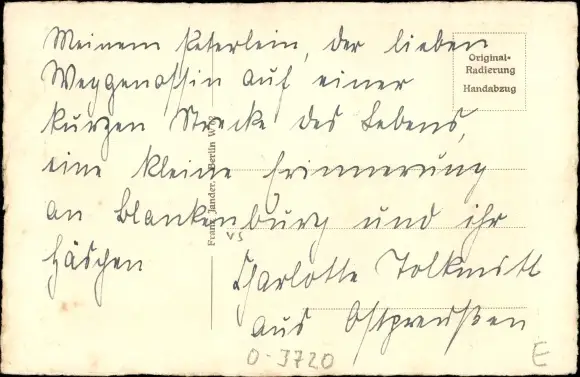 Meinem Peterlein, der lieben
Weggenossin auf einer
kurzen Strecke des Lebens,
eine kleine Erinnerung
an Blankenburg und ihr
Häschen
Charlotte Tolkmitt
aus Ostpreußen
Original-
Radierung
Handabzug
Franz Jander, Berlin W
VS
0-3720
E